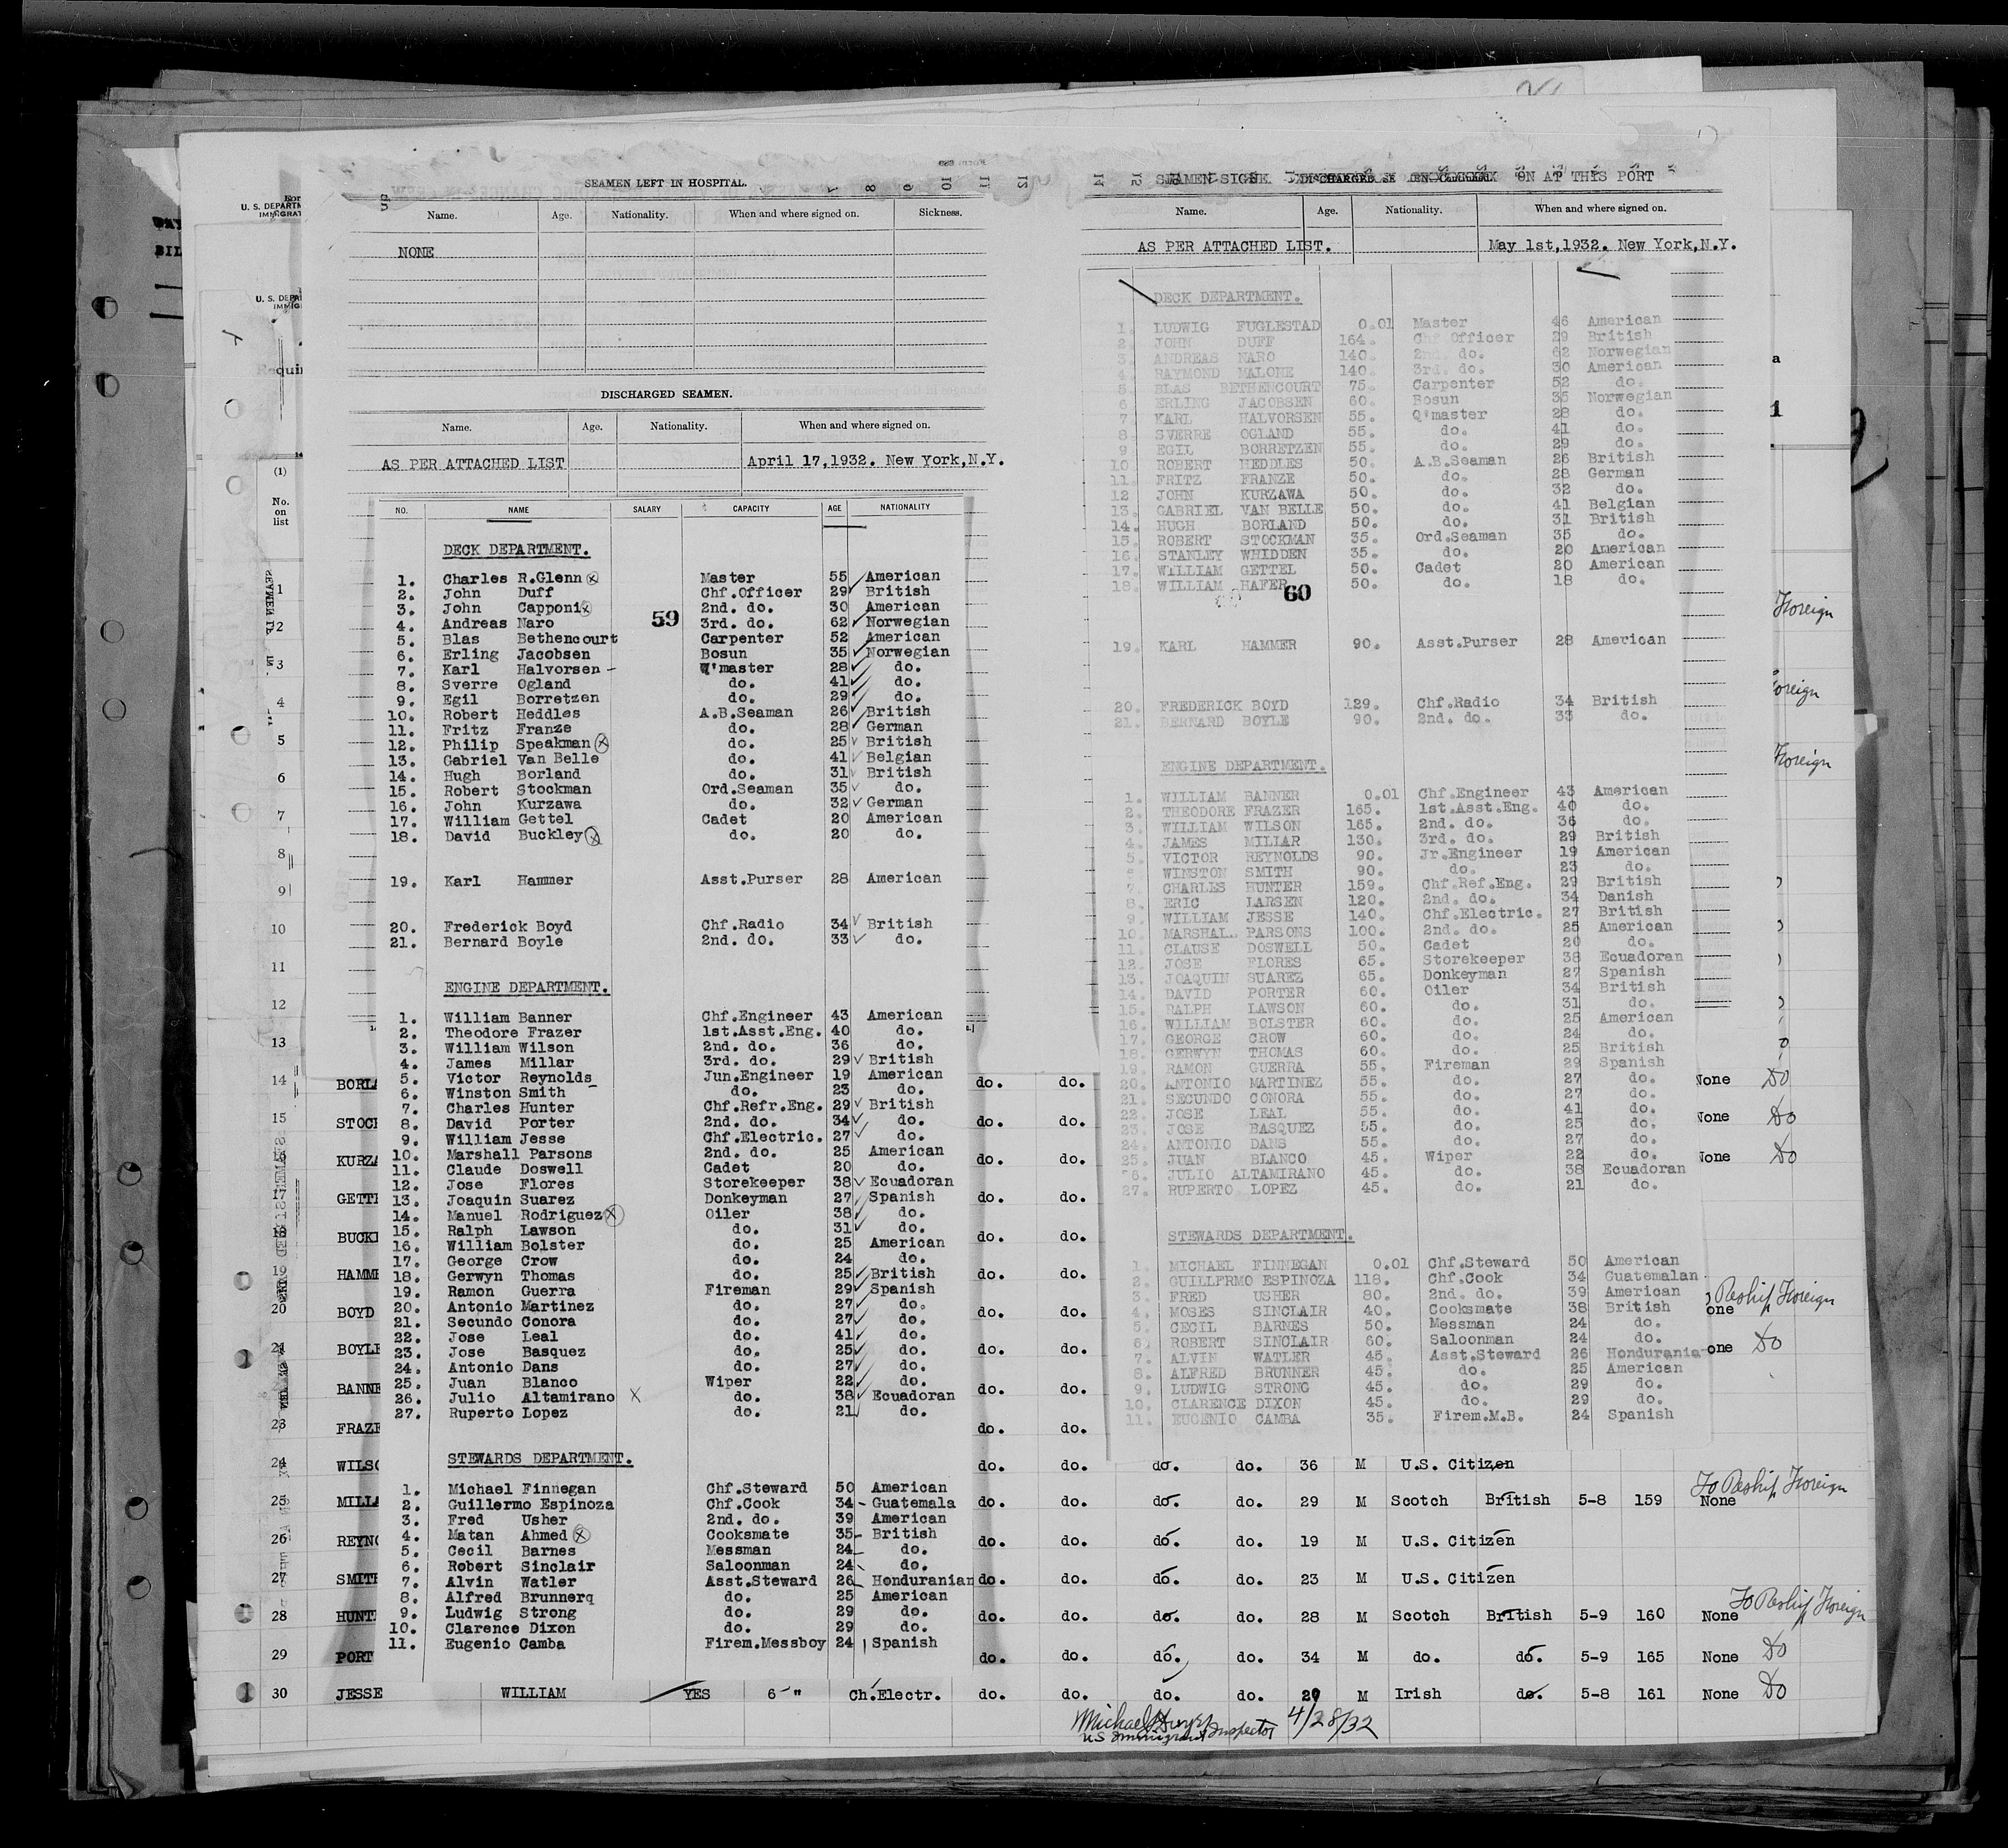 SEAMEN LEFT IN HOSPITAL.
Name. Age. Nationality. When and where signed on. Sickness.
NONE
DISCHARGED SEAMEN.
Name. Age. Nationality. When and where signed on.
AS PER ATTACHED LIST April 17,1932. New York,N.Y.
NO. NAME SALARY CAPACITY AGE NATIONALITY
DECK DEPARTMENT.
1. Charles R.Glenn Master 55 American
2. John Duff Chf.Officer 29 British
3. John Capponi 2nd. do. 30 American
59
4. Andreas Naro 3rd. do. 62 Norwegian
5. Blas Bethencourt Carpenter 52 American
6. Erling Jacobsen Bosun 35 Norwegian
7. Karl Halvorsen Q'master 28 do.
8. Sverre Ogland do. 41 do.
9. Egil Borretzen do. 29 do.
10. Robert Heddles A.B.Seaman 26 British
11. Fritz Franze do. 28 German
12. Philip Speakman do. 25 British
13. Gabriel Van Belle do. 41 Belgian
14. Hugh Borland do. 31 British
15. Robert Stockman Ord.Seaman 35 do.
16. John Kurzawa do. 32 German
17. William Gettel Cadet 20 American
18. David Buckley do. 20 do.
19. Karl Hammer Asst.Purser 28 American
20. Frederick Boyd Chf.Radio 34 British
21. Bernard Boyle 2nd. do. 33 do.
ENGINE DEPARTMENT.
1. William Banner Chf.Engineer 43 American
2. Theodore Frazer 1st.Asst.Eng. 40 do.
3. William Wilson 2nd. do. 36 do.
4. James Millar 3rd. do. 29 British
5. Victor Reynolds Jun.Engineer 19 American
6. Winston Smith do. 23 do.
7. Charles Hunter Chf.Refr.Eng. 29 British
8. David Porter 2nd. do. 34 do.
9. William Jesse Chf.Electric. 27 do.
10. Marshall Parsons 2nd. do. 25 American
11. Claude Doswell Cadet 20 do.
12. Jose Flores Storekeeper 38 Ecuadoran
13. Joaquin Suarez Donkeyman 27 Spanish
14. Manuel Rodriguez Oiler 38 do.
15. Ralph Lawson do. 31 do.
16. William Bolster do. 25 American
17. George Crow do. 24 do.
18. Gerwyn Thomas do. 25 British
19. Ramon Guerra Fireman 29 Spanish
20. Antonio Martinez do. 27 do.
21. Secundo Conora do. 27 do.
22. Jose Leal do. 41 do.
23. Jose Basquez do. 25 do.
24. Antonio Dans do. 27 do.
25. Juan Blanco Wiper 22 do.
26. Julio Altamirano X do. 38 Ecuadoran
27. Ruperto Lopez do. 21 do.
STEWARDS DEPARTMENT.
1. Michael Finnegan Chf.Steward 50 American
2. Guillermo Espinoza Chf.Cook 34 Guatemala
3. Fred Usher 2nd. do. 39 American
4. Matan Ahmed Cooksmate 35 British
5. Cecil Barnes Messman 24 do.
6. Robert Sinclair Saloonman 24 do.
7. Alvin Watler Asst.Steward 26 Honduranian
8. Alfred Brunnerq do. 25 American
9. Ludwig Strong do. 29 do.
10. Clarence Dixon do. 29 do.
11. Eugenio Camba Firem.Messboy 24 Spanish
ON AT THIS PORT
Name. Age. Nationality. When and where signed on.
AS PER ATTACHED LIST. May 1st,1932. New York,N.Y.
DECK DEPARTMENT.
1. LUDWIG FUGLESTAD 0.01 Master 46 American
2. JOHN DUFF 164. Chf Officer 29 British
3. ANDREAS NARO 140. 2nd. do. 62 Norwegian
4. RAYMOND MALONE 140. 3rd. do. 30 American
5. BLAS BETHENCOURT 75. Carpenter 52 do.
6. ERLING JACOBSEN 60. Bosun 35 Norwegian
7. KARL HALVORSEN 55. Q'master 28 do.
8. SVERRE OGLAND 55. do. 41 do.
9. EGIL BORRETZEN 55. do. 29 do.
10 ROBERT HEDDLES 50. A.B.Seaman 26 British
11. FRITZ FRANZE 50. do. 28 German
12 JOHN KURZAWA 50. do. 32 do.
13. GABRIEL VAN BELLE 50. do. 41 Belgian
14. HUGH BORLAND 50. do. 31 British
15. ROBERT STOCKMAN 35. Ord.Seaman 35 do.
16. STANLEY WHIDDEN 35. do. 20 American
17. WILLIAM GETTEL 50. Cadet 20 American
18. WILLIAM HAFER 50. do. 18 do.
60
19. KARL HAMMER 90. Asst.Purser 28 American
20. FREDERICK BOYD 129. Chf.Radio 34 British
21. BERNARD BOYLE 90. 2nd. do. 33 do.
ENGINE DEPARTMENT.
1. WILLIAM BANNER 0.01 Chf.Engineer 43 American
2. THEODORE FRAZER 165. 1st.Asst.Eng. 40 do.
3. WILLIAM WILSON 165. 2nd. do. 36 do.
4. JAMES MILIAR 130. 3rd. do. 29 British
5. VICTOR REYNOLDS 90. Jr.Engineer 19 American
WINSTON SMITH 90. do. 23 do.
7. CHARLES HUNTER 159. Chf.Ref.Eng. 29 British
8. ERIC LARSEN 120. 2nd. do. 34 Danish
9. WILLIAM JESSE 140. Chf.Electric. 27 British
10. MARSHAL. PARSONS 100. 2nd. do. 25 American
11. CLAUSE DOSWELL 50. Cadet 20 do.
12. JOSE FLORES 65. Storekeeper 38 Ecuadoran
13. JOAQUIN SUAREZ 65. Donkeyman 27 Spanish
14. DAVID PORTER 60. Oiler 34 British
15. RALPH LAWSON 60. do. 31 do.
16. WILLIAM BOLSTER 60. do. 25 American
17. GEORGE CROW 60. do. 24 do.
18. GERWYN THOMAS 60. do. 25 British
19. RAMON GUERRA 55. Fireman 29 Spanish
20. ANTONIO MARTINEZ 55. do. 27 do.
21. SECUNDO CONORA 55. do. 27 do.
22. JOSE LEAL 55. do. 41 do.
23. JOSE BASQUEZ 55. do. 25 do.
24. ANTONIO DANS 55. do. 27 do.
25. JUAN BLANCO 45. Wiper 22 do.
JULIO ALTAMIRANO 45. do. 38 Ecuadoran
27. RUPERTO LOPEZ 45. do. 21 do.
STEWARDS DEPARTMENT.
1. MICHAEL FINNEGAN 0.01 Chf.Steward 50 American
2. GUILLPRMO ESPINOZA 118. Chf.Cook 34 Guatemalan
3. FRED USHER 80. 2nd. do. 39 American
4. MOSES SINCLAIR 40. Cooksmate 38 British
5. CECIL BARNES 50. Messman 24 do.
6. ROBERT SINCLAIR 60. Saloonman 24 do.
7. ALVIN WATLER 45. Asst.Steward 26 Hondurania
8. ALFRED BRUNNER 45. do. 25 American
9. LUDWIG STRONG 45. do. 29 do.
10. CLARENCE DIXON 45. do. 29 do.
11. EUGENIO CAMBA 35. Firem.M.B. 24 Spanish
U. S. DEPARTM
IMMIGRAT
U. S. DEPA
IMMIG
Requir
(1)
No.
on
list
1
2
3
4
5
6
7
8
9
10
11
12
13
Foreign
oreign
Foreign
14 BORLA do. do. None Do
15 STOCK do. do. None Do
KURZA do. do. None Do
17 GETTE do. do.
BUCKL do. do.
19 HAMME do. do.
Reship Foreign
20 BOYD do. do. one
21 BOYLE do. do. one Do
BANNE do. do.
23 FRAZE do. do.
24 WILSO do. do. do. do. 36 M U.S. Citizen
To Reship Foreign
25 MILLA do. do. do. do. 29 M Scotch British 5-8 159 None
26 REYNO do. do. do. do. 19 M U.S. Citizen
27 SMITH do. do. do. do. 23 M U.S. Citizen
To Reship Foreign
28 HUNT do. do. do. do. 28 M Scotch British 5-9 160 None
29 PORT do. do. do. do. 34 M do. do. 5-9 165 None Do
30 JESSE WILLIAM YES 6 " Ch.Electr. do. do. do. do. 29 M Irish do. 5-8 161 None Do
Michael 4/28/32
US Immigrant Inspector